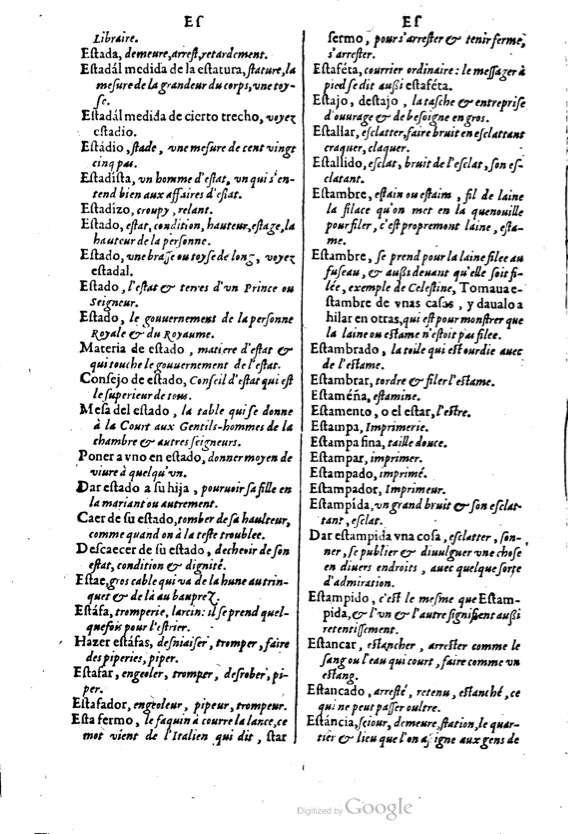 Eſ
Libraire.
Eſtada, demeure, arreſt, retardement.
Eſtadál medida de la eſtatura, ſtature, la
meſure de la grandeur du corps, vne toy-
ſe.
Eſtadál medida de cierto trecho, voyez
eſtadio.
Eſtádio, ſtade, vne meſure de cent vingt
cinq pas.
Eſtadiſta, vn homme d'eſtat, vn qui s'en-
tend bien aux affaires d'eſtat.
Eſtadizo, croupy, relant.
Eſtado, eſtat, condition, hauteur, eſtage, la
hauteur de la perſonne.
Eſtado, vne braſſe ou toyſe de long, voyez
eſtadal.
Eſtado, l'eſtat & terres d'vn Prince ou
Seigneur.
Eſtado, le gouuernement de la perſonne
Royale & du Royaume.
Materia de eſtado, matiere d'eſtat &
qui touche le gouuernement de l'eſtat.
Conſejo de eſtado, Conſeil d'eſtat qui eſt
le ſuperieur de tous.
Meſa del eſtado, la table qui ſe donne
à la Court aux Gentils-hommes de la
chambre & autres ſeigneurs.
Poner a vno en eſtado, donner moyen de
viure à quelqu'vn.
Dar eſtado a ſu hija, pouruoir ſa fille en
la mariant ou autrement.
Caer de ſu eſtado, tomber de ſa haulteur,
comme quand on à la teſte troublee.
Deſcaecer de ſu eſtado, decheoir de ſon
eſtat, condition & dignité.
Eſtae, gros cable qui va de la hune au trin-
quet & de là au bauprez.
Eſtáfa, tromperie, larcin: il ſe prend quel-
quefois pour l'eſtrier.
Hazer eſtáfas, deſniaiſer, tromper, faire
des piperies, piper.
Eſtafar, engeoler, tromper, deſrober, pi-
per.
Eſtafador, engeoleur, pipeur, trompeur.
Eſta fermo, le faquin à courre la lance, ce
mot vient de l'Italien qui dit, ſtar
Eſ
fermo, pour s'arreſter & tenir ferme,
s'arreſter.
Eſtaféta, courrier ordinaire: le meſſager à
pied ſe dit auſſi eſtaféta.
Eſtajo, deſtajo, la taſche & entrepriſe
d'ouurage & de beſoigne en gros.
Eſtallar, eſclatter, faire bruit en eſclattant
craquer, claquer.
Eſtallido, eſclat, bruit de l'eſclat, ſon eſ-
clatant.
Eſtambre, eſtain ou eſtaim, fil de laine
la filace qu'on met en la quenouille
pour filer, c'eſt proprement laine, eſta-
me.
Eſtambre, ſe prend pour la laine filee au
fuſeau, & auſſi deuant qu'elle ſoit fi-
lée, exemple de Celeſtine, Tomaua e-
ſtambre de vnas caſas, y daualo a
hilar en otras, qui eſt pour monſtrer que
la laine ou eſtame n'eſtoit pas filee.
Eſtambrado, la toile qui eſt ourdie auec
de l'eſtame.
Eſtambrar, tordre & filer l'eſtame.
Eſtaméña, eſtamine.
Eſtamento, o el eſtar, l'eſtre.
Eſtampa, Imprimerie.
Eſtampa fina, taille douce.
Eſtampar, imprimer.
Eſtampado, imprimé.
Eſtampador, Imprimeur.
Eſtampida, vn grand bruit & ſon eſclat-
tant, eſclat.
Dar eſtampida vna coſa, eſclatter, ſon-
ner, ſe publier & diuulguer vne choſe
en diuers endroits, auec quelque ſorte
d'admiration.
Eſtampido, c'eſt le meſme que Eſtam-
pida, & l'vn & l'autre ſignifient auſſi
retentiſſement.
Eſtancar, eſtancher, arreſter comme le
ſang ou l'eau qui court, faire comme vn
eſtang.
Eſtancado, arreſté, retenu, eſtanché, ce
qui ne peut paſſer oultre.
Eſtáncia, ſeiour, demeure, ſtation, le quar-
tier & lieu que l'on aſſigne aux gens de
Digitized by Google